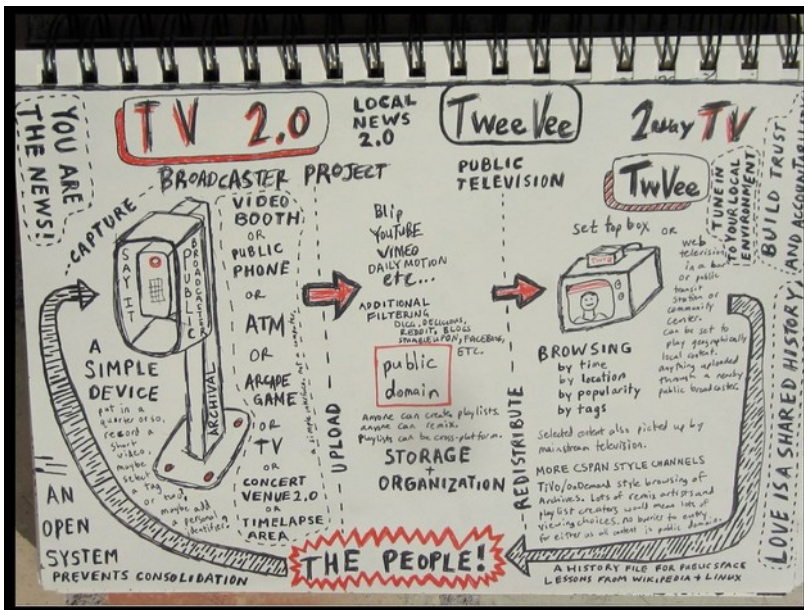 YOU ARE
THE NEWS!
TV 2.0
LOCAL
NEWS
2.0
TWeeVee
2way TV
BROADCASTER PROJECT
PUBLIC
TELEVISION
TWVee
TUNE IN
TO YOUR LOCAL
ENVIRONMENT
BUILD TRUST
AND ACCOUNTABILITY
CAPTURE
SAY IT
PUBLIC
BROADCASTER
ARCHIVAL
A
SIMPLE
DEVICE
put in a
quarter or so,
record a
short
video,
maybe
select
a tag
or two?
maybe add
a personal
identifier.
VIDEO
BOOTH
OR
PUBLIC
PHONE
OR
ATM
OR
ARCADE
GAME
OR
TV
OR
CONCERT
VENUE 2.0
OR
TIMELAPSE
AREA
a simple interface, not a computer
UPLOAD
Blip
YOUTUBE
VIMEO
DAILY MOTION
etc...
ADDITIONAL
FILTERING
DIGG, DELICIOUS,
REDDIT, BLOGS
STUMBLEUPON, FACEBOOK,
ETC.
public
domain
Anyone can create playlists.
anyone can remix.
Playlists can be cross-platform.
STORAGE
+
ORGANIZATION
REDISTRIBUTE
set top box OR
web
television
in a bar
or public
transit
station or
community
center.
can be set to
play geographically
local content.
anything uploaded
through a nearby
public broadcaster.
BROWSING
by time
by location
by popularity
by tags
Selected content also picked up by
mainstream television.
MORE CSPAN STYLE CHANNELS
TiVO/ONDemand style browsing of
Archives. Lots of remix artists and
playlist creators would mean lots of
viewing choices. no barrier to entry
for either as all content is public domain
LOVE IS A SHARED HISTORY
AN
OPEN
SYSTEM
PREVENTS CONSOLIDATION
THE PEOPLE!
A HISTORY FILE FOR PUBLIC SPACE
LESSONS FROM WIKIPEDIA + LINUX